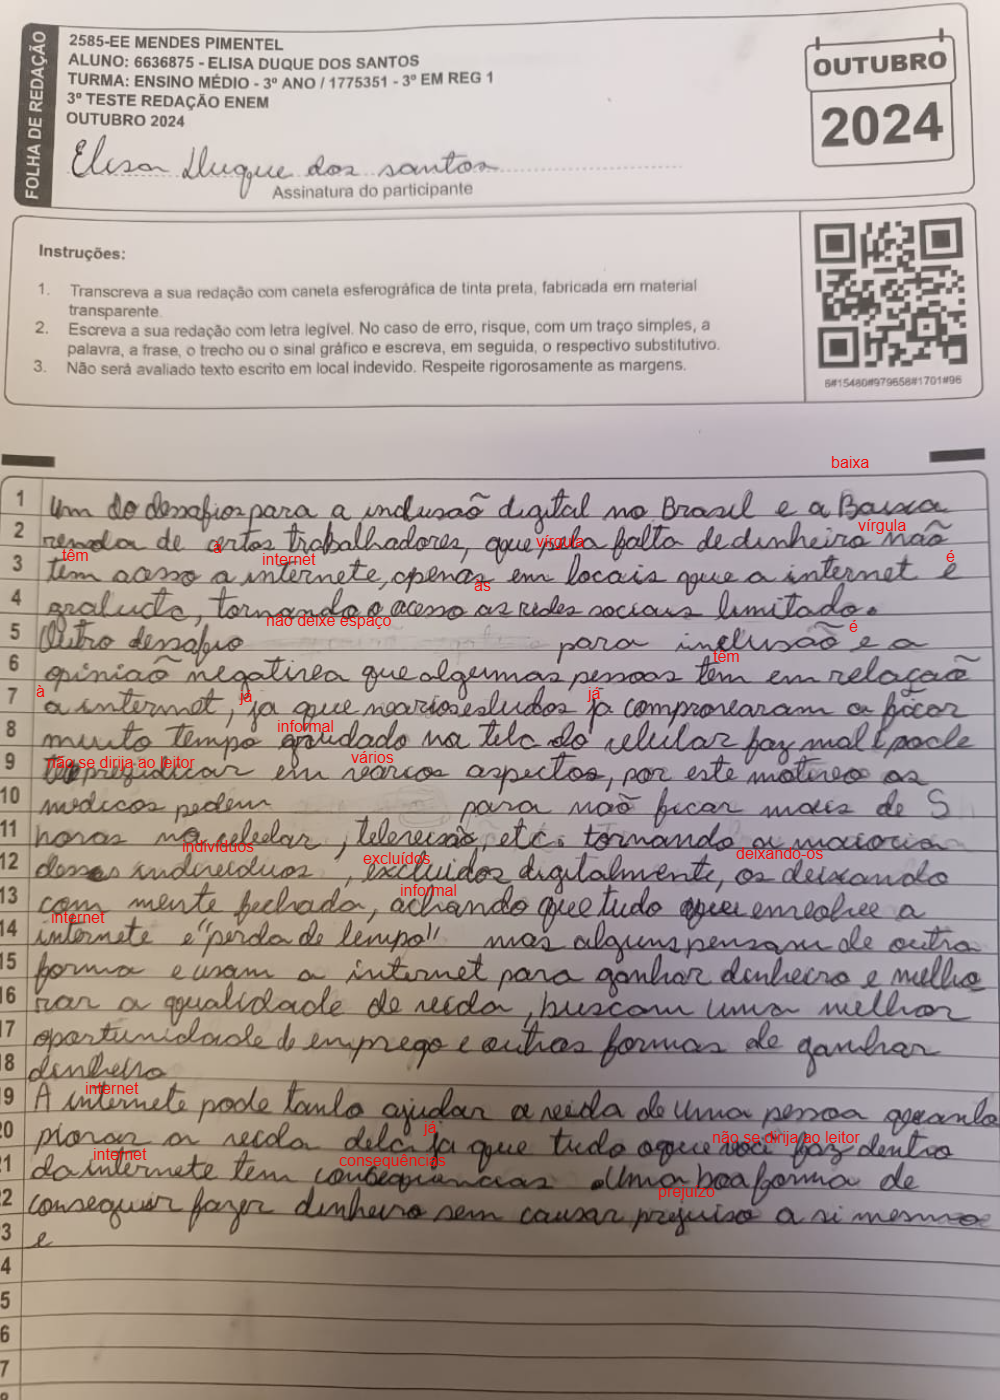 FOLHA DE REDAÇÃO
2585-EE MENDES PIMENTEL
ALUNO: 6636875 - ELISA DUQUE DOS SANTOS
TURMA: ENSINO MÉDIO - 3º ANO / 1775351 - 3º EM REG 1
3º TESTE REDAÇÃO ENEM
OUTUBRO 2024
Elisa Duque dos santos
Assinatura do participante
OUTUBRO
2024
Instruções:
1. Transcreva a sua redação com caneta esferográfica de tinta preta, fabricada em material
transparente.
2. Escreva a sua redação com letra legível. No caso de erro, risque, com um traço simples, a
palavra, a frase, o trecho ou o sinal gráfico e escreva, em seguida, o respectivo substitutivo.
3. Não será avaliado texto escrito em local indevido. Respeite rigorosamente as margens.
6#15480#979658#1701#96
baixa
1 Um do desafios para a inclusaõ digital no Brasil e a Baixa
vírgula
2 renda de certos trabalhadores, que pela falta de dinheiro naõ
têm a internet vírgula é
3 tem acesso a internete, apenas em locais que a internet e
as
4 gratuita, tornando o acesso as redes sociais limitado.
não deixe espaço é
5 Outro desafio para inclusaõ e a
têm
6 opiniaõ negativa que algumas pessoas tem em relaçaõ
à já já
7 a internet, ja que varios estudos ja comprovaram a ficar
informal
8 muito tempo grudado na tela do celular faz mal e pode
não se dirija ao leitor vários
9 prejudicar em varios aspectos, por este motivo os
10 medicos pedem para naõ ficar mais de 5
11 horas no celular, televisaõ, etc. tornando a maioria
indivíduos excluídos deixando-os
12 desses individuos, excluidos digitalmente, os deixando
informal
13 com mente fechada, achando que tudo que envolve a
internet
14 internete e "perda de tempo" mas alguns pensam de outra
15 forma e usam a internet para ganhar dinheiro e melho
16 rar a qualidade de vida, buscam uma melhor
17 oportunidade de emprego e outras formas de ganhar
8 dinheiro
internet
9 A internete pode tanto ajudar a vida de uma pessoa quanto
já não se dirija ao leitor
20 piorar a vida dela ja que tudo o que você faz dentro
internet consequências
21 da internete tem consequências. Uma boa forma de
prejuízo
2 conseguir fazer dinheiro sem causar prejuiso a si mesmo
3 e
4
5
6
7
8